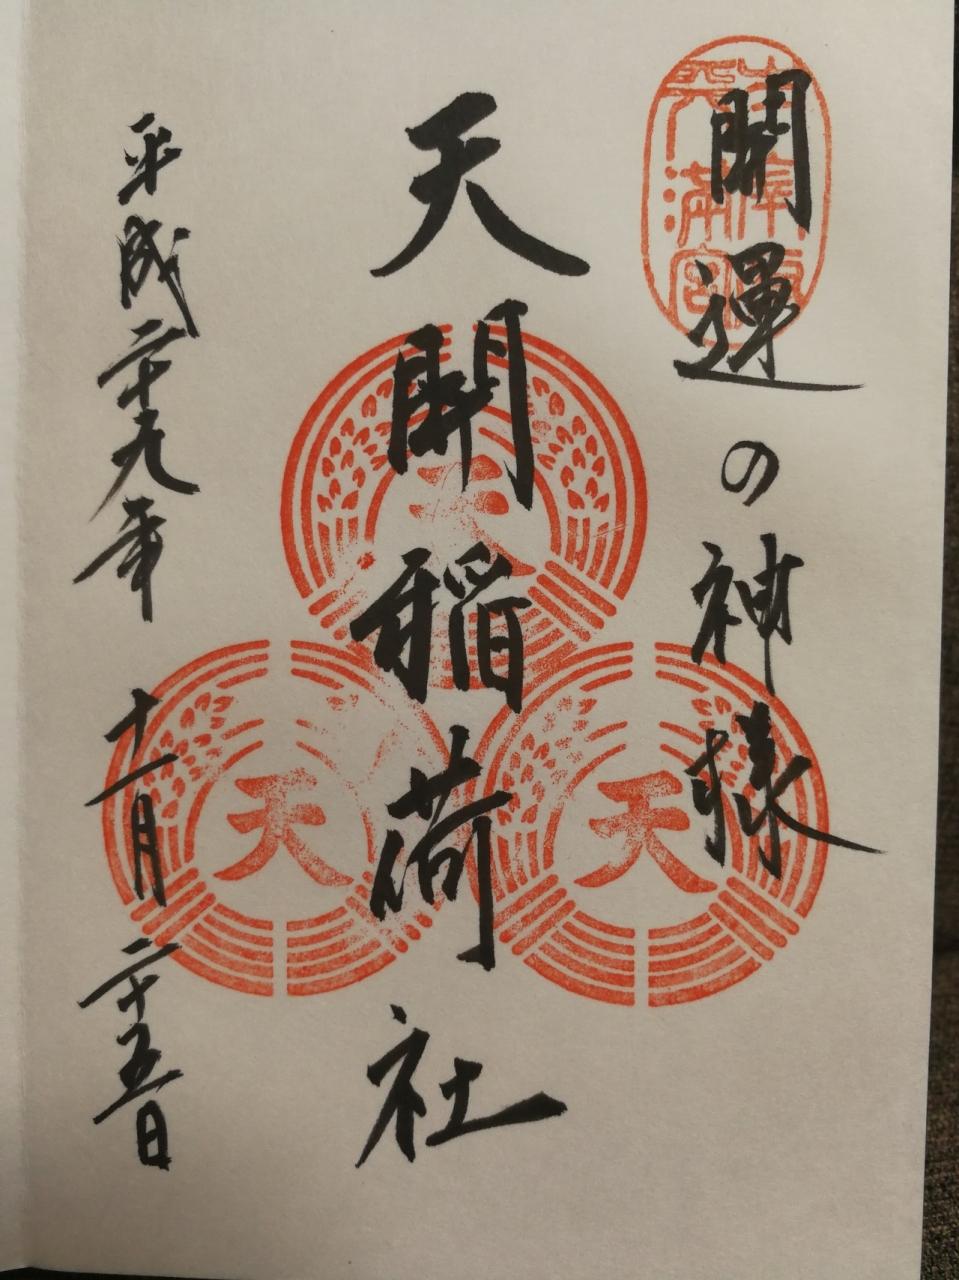 開運の神様
天開稲荷社
平成二十九年 十一月 二十五日
天満宮
天
天
天